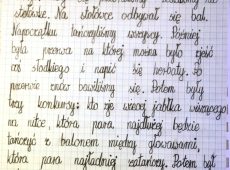 stołówkę. Na stołówce odbywał się bal.
Na początku tańczyliśmy wszyscy. Później
była przerwa na której można było zjeść
coś słodkiego i napić się herbaty. Po
przerwie znów bawiliśmy się. Potem były
trzy konkursy: kto zje więcej jabłka wiszącego
na nitce, która para najdłużej będzie
tańczyć z balonem między głowami,
która para najładniej zatańczy. Potem był